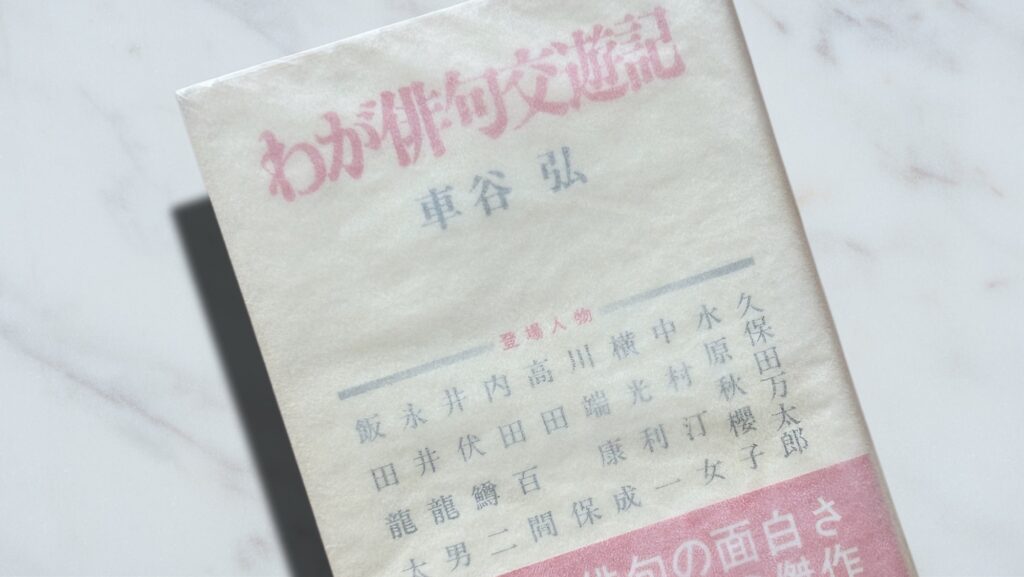 わが俳句交遊記
車谷 弘
登場人物
久保田万太郎
水原秋櫻子
中村汀女
横光利一
川端康成
高田 保
内田百間
井伏鱒二
永井龍男
飯田龍太
俳句の面白さ
傑作